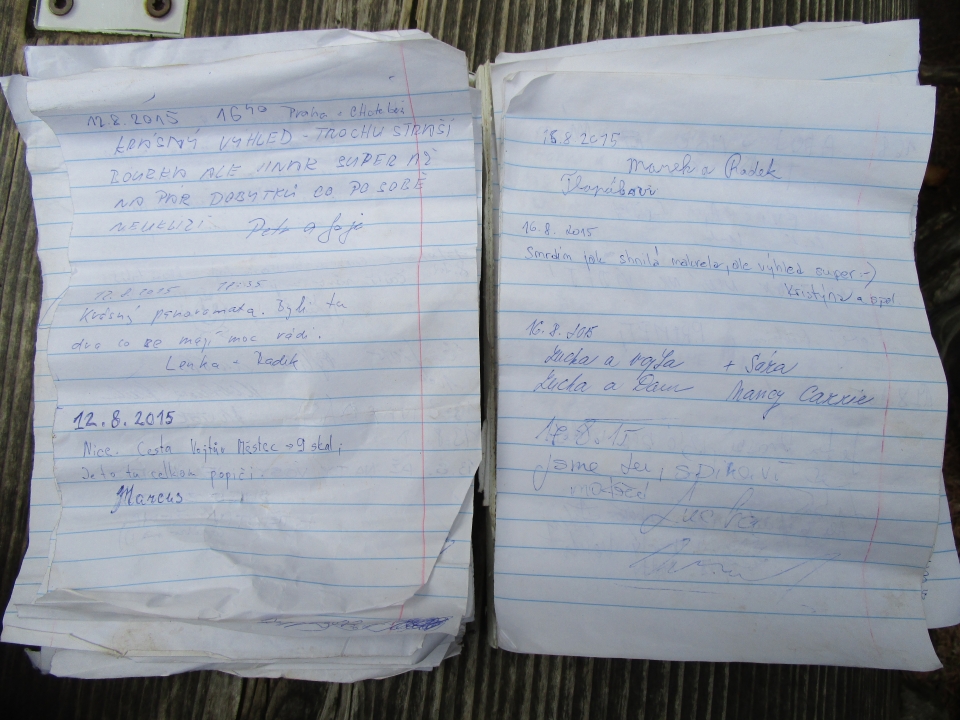 12.8.2015 16⁴⁰ Praha - Chotěboř
KRÁSNÝ VÝHLED - TROCHU STRAŠÍ
BOUŘKA ALE JINAK SUPER AŽ
NA PÁR DOBYTKŮ CO PO SOBĚ
NEUKLIZÍ. Petr a
12.8.2015
Krásný panoramata. Byli tu
dva co se mají moc rádi.
Lenka - Radek
12.8.2015
Nice. Cesta Vojtův Městec → 9 skal,
Je to tu celkom popiči.
Marcus
18.8.2015
Marek a Radek
16.8.2015
Smrdím jak shnilá makrela, ale výhled super :-)
Kristýna a
16.8.2015
Lucka a Vojta + Sára
Lucka a Dan Nancy Carrie
17.8.15
Jsme tu,